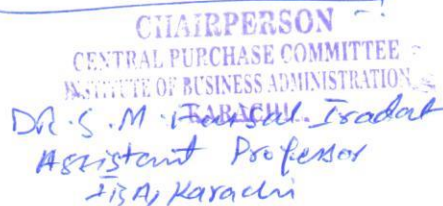 CHAIRPERSON
CENTRAL PURCHASE COMMITTEE
INSTITUTE OF BUSINESS ADMINISTRATION
KARACHI.
DR. S. M. Faisal Iradat
Assistant Professor
IBA, Karachi